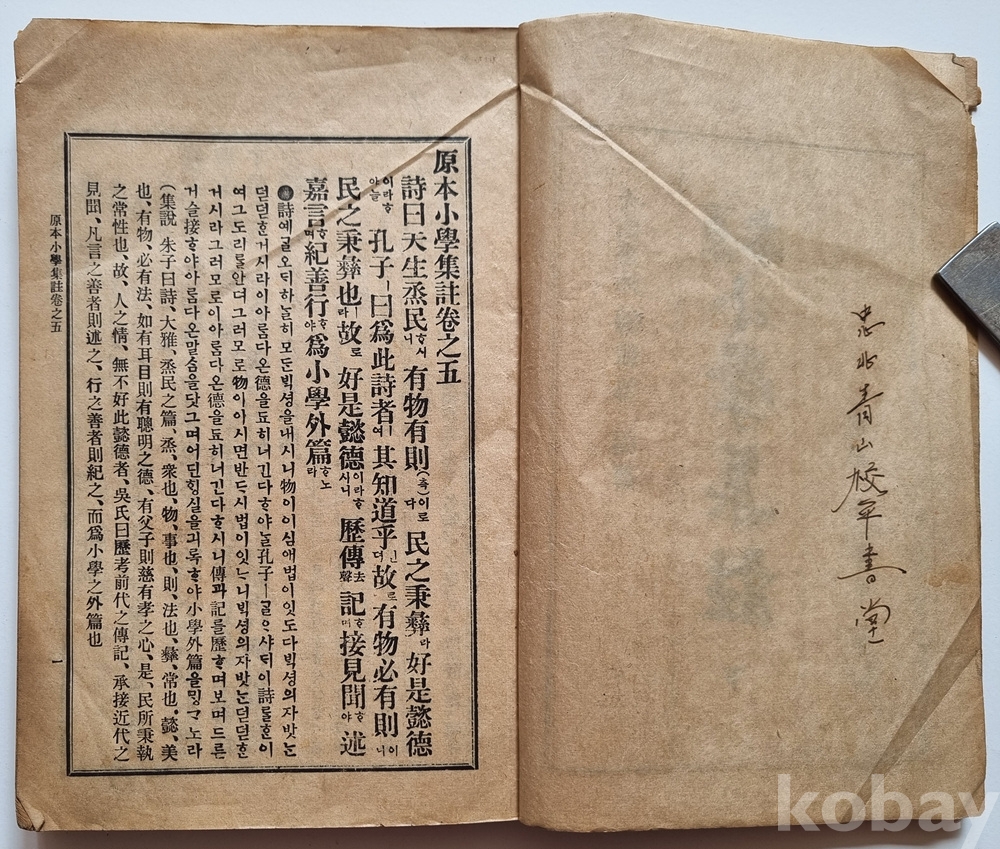 忠北青山校平書堂
原本小學集註卷之五
詩曰天生烝民ᄒᆞ시니 有物有則(측)이로다 民之秉彝라 好是懿德
이라ᄒᆞ야ᄂᆞᆯ 孔子ㅣ曰爲此詩者ㅣ여 其知道乎ᅟᅵᆫ뎌 故로 有物必有則이니
民之秉彝也ㅣ라 故로 好是懿德이라ᄒᆞ시니 歷傳去聲記ᄒᆞ며 接見聞ᄒᆞ야 述
嘉言ᄒᆞ며 紀善行ᄒᆞ야 爲小學外篇ᄒᆞ노라
詩예ᄀᆞᆯ오ᄃᆡ하ᄂᆞᆯ히모ᄃᆞᆫᄇᆡᆨ셩을내시니物이이심애법이잇도다ᄇᆡᆨ셩의자밧ᄂᆞᆫ
덛덛ᄒᆞᆫ거시라이아ᄅᆞᆷ다온德을됴히너긴다ᄒᆞ야ᄂᆞᆯ孔子ㅣᄀᆞᆯᄋᆞ샤ᄃᆡ이詩ᄅᆞᆯᄒᆞᆫ이
여그도리ᄅᆞᆯ안뎌그러모로物이아시면반ᄃᆞ시법이잇ᄂᆞ니ᄇᆡᆨ셩의자밧ᄂᆞᆫ덛덛ᄒᆞᆫ
거시라그러모로이아ᄅᆞᆷ다온德을됴히너긴다ᄒᆞ시니傳과記를歷ᄒᆞ며보며드른
거슬接ᄒᆞ야아ᄅᆞᆷ다온말ᄉᆞᆷ을닷그며어딘ᄒᆡᆼ실을긔록ᄒᆞ야小學外篇을ᄆᆡᆼᄀᆞ노라
(集說 朱子曰詩、大雅、烝民之篇、烝、衆也、物、事也、則、法也、彝、常也、懿、美
也、有物、必有法、如有耳目則有聰明之德、有父子則慈有孝之心、是、民所秉執
之常性也、故、人之情、無不好此懿德者、吳氏曰歷考前代之傳記、承接近代之
見聞、凡言之善者則述之、行之善者則紀之、而爲小學之外篇也
原本小學集註卷之五
一
kobay